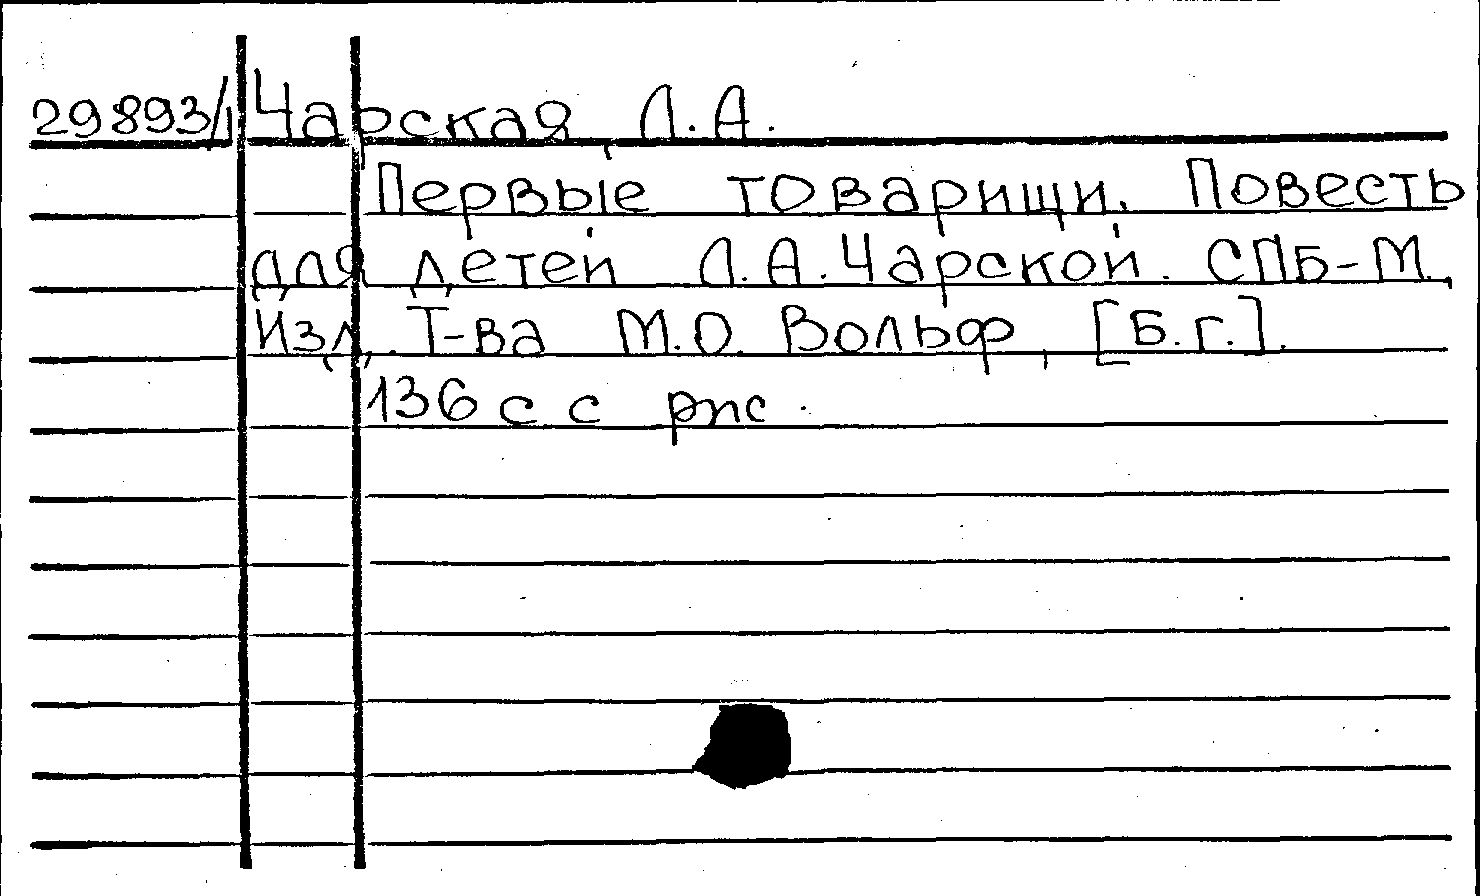 29893/1 Чарская, Л.А.
Первые товарищи. Повесть
для детей Л.А.Чарской. СПБ-М.,
Изд. Т-ва М.О. Вольф, [Б.г.].
136 с с рис.